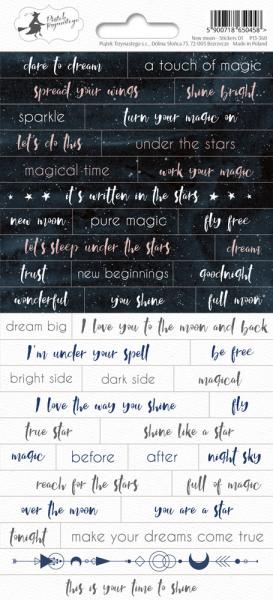 Piątek Trzynastego
5 900718 650458 >
New moon - Stickers 01 P13-360
Piątek Trzynastego s.c., Dolina Słońca 75, 72-005 Bezrzecze Made in Poland
dare to dream a touch of magic
spread your wings shine bright...
sparkle turn your magic on
let's do this under the stars
magical time work your magic
it's written in the stars
new moon pure magic fly free
let's sleep under the stars dream
trust new beginnings goodnight
wonderful you shine full moon
dream big I love you to the moon and back
I'm under your spell be free
bright side dark side magical
I love the way you shine fly
true star shine like a star
magic before after night sky
reach for the stars full of magic
over the moon you are a star
tonight make your dreams come true
this is your time to shine